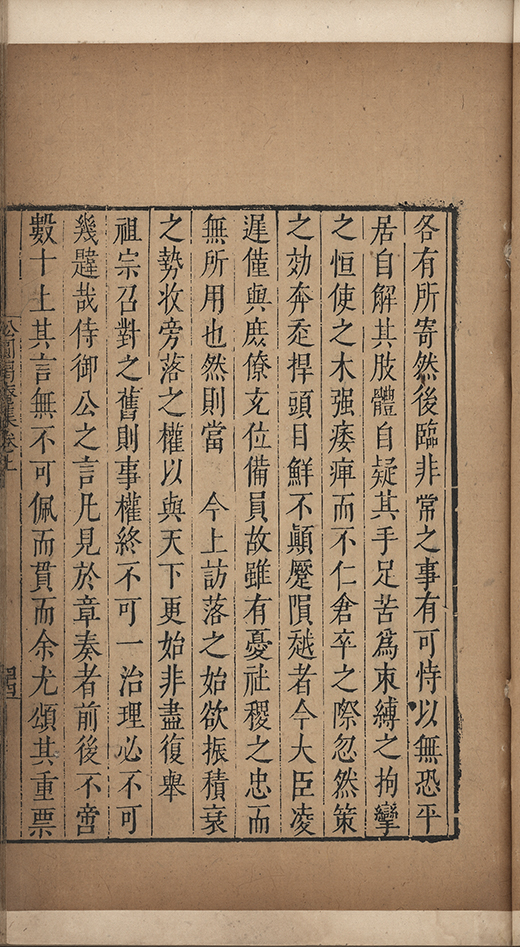 各有所寄然後臨非常之事有可恃以無恐平
居自解其肢體自疑其手足苦為束縛之拘攣
之恒使之木强痿痺而不仁倉卒之際忽然策
之効奔走捍頭目鮮不顛蹷隕越者今大臣凌
遲僅與庶僚充位備員故雖有憂社稷之忠而
無所用也然則當　今上訪落之始欲振積衰
之勢收旁落之權以與天下更始非盡復舉
祖宗召對之舊則事權終不可一治理必不可
幾韙哉侍御公之言凡見於章奏者前後不啻
數十上其言無不可佩而貫而余尤頌其重票